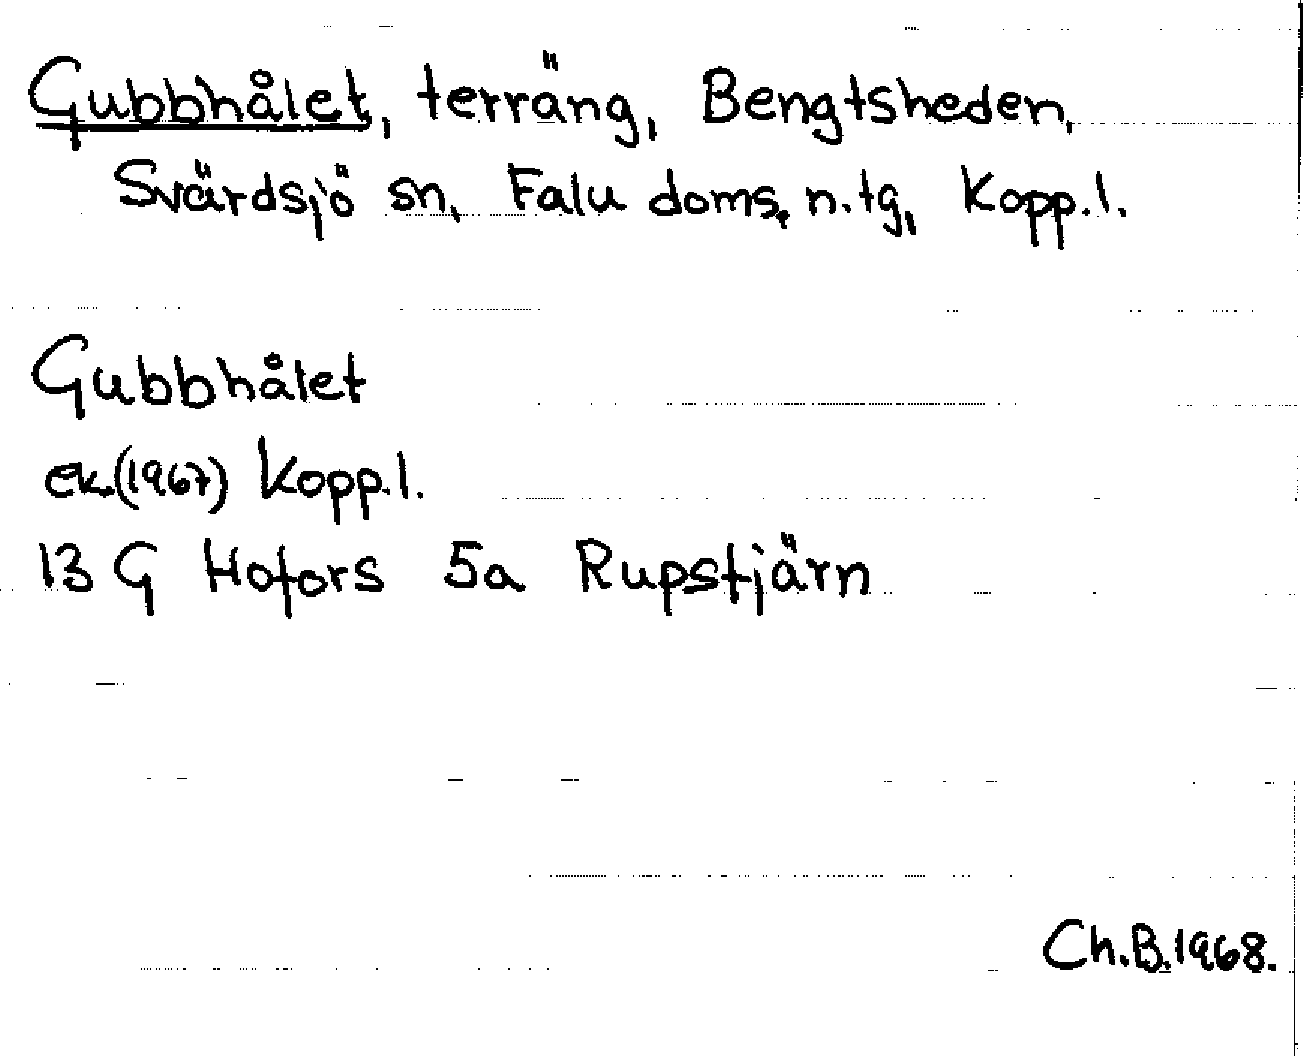 Gubbhålet, terräng, Bengtsheden,
Svärdsjö sn, Falu doms. n.tg, Kopp.l.
Gubbhålet
ek.(1967) Kopp.l.
13 G Hofors 5a Rupstjärn
Ch.B.1968.